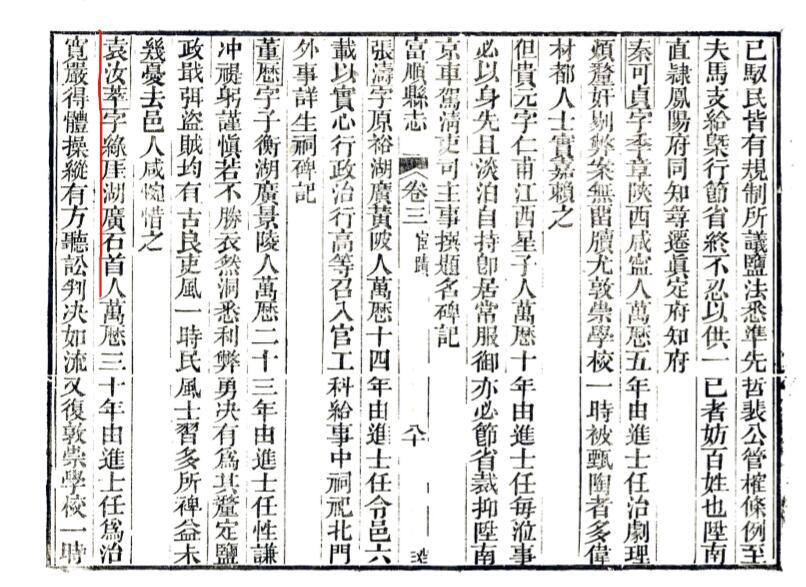 已馭民皆有規制所議鹽法悉準先哲裴公管榷條例至
夫馬支給槩行節省終不忍以供一己者妨百姓也陞南
直隷鳳陽府同知尋遷眞定府知府
秦可貞字季章陝西咸寍人萬歷五年由進士任治劇理
煩釐奸剔弊案無留牘尤敦崇學校一時被甄陶者多偉
材都人士實嘉賴之
但貴元字仁甫江西星子人萬歷十年由進士任每涖事
必以身先且淡泊自持卽居常服御亦必節省裁抑陞南
京車駕淸吏司主事撰題名碑記
富順縣志 卷三 宦蹟 八十
張濤字原裕湖廣黃陂人萬歷十四年由進士任令邑六
載以實心行政治行高等召入官工科給事中祠祀北門
外事詳生祠碑記
董歷字子衡湖廣景陵人萬歷二十三年由進士任性謙
冲視躬謹愼若不勝衣然洞悉利弊勇決有爲其釐定鹽
政戢弭盜賊均有古良吏風一時民風士習多所裨益未
幾憂去邑人咸惋惜之
袁汝萃字綠厓湖廣石首人萬歷三十年由進士任爲治
寬嚴得體操縱有方聽訟判决如流又復敦崇學校一時